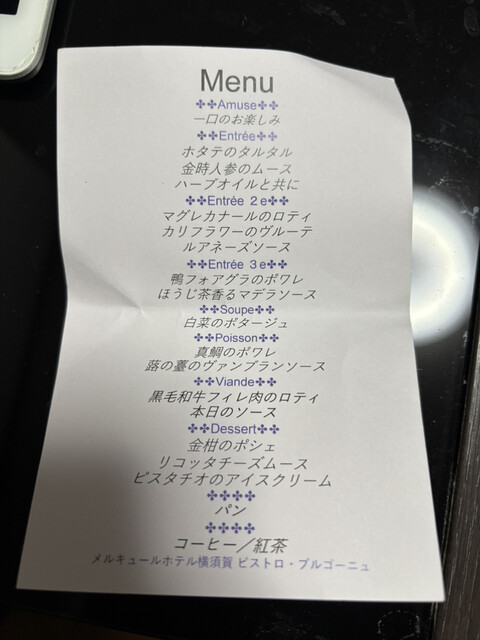 Menu
✤✤Amuse✤✤
一口のお楽しみ
✤✤Entrée✤✤
ホタテのタルタル
金時人参のムース
ハーブオイルと共に
✤✤Entrée 2e✤✤
マグレカナールのロティ
カリフラワーのヴルーテ
ルアネーズソース
✤✤Entrée 3e✤✤
鴨フォアグラのポワレ
ほうじ茶香るマデラソース
✤✤Soupe✤✤
白菜のポタージュ
✤✤Poisson✤✤
真鯛のポワレ
蕗の薹のヴァンブランソース
✤✤Viande✤✤
黒毛和牛フィレ肉のロティ
本日のソース
✤✤Dessert✤✤
金柑のポシェ
リコッタチーズムース
ピスタチオのアイスクリーム
✤✤✤✤
パン
✤✤✤✤
コーヒー／紅茶
メルキュールホテル横須賀 ビストロ・ブルゴーニュ